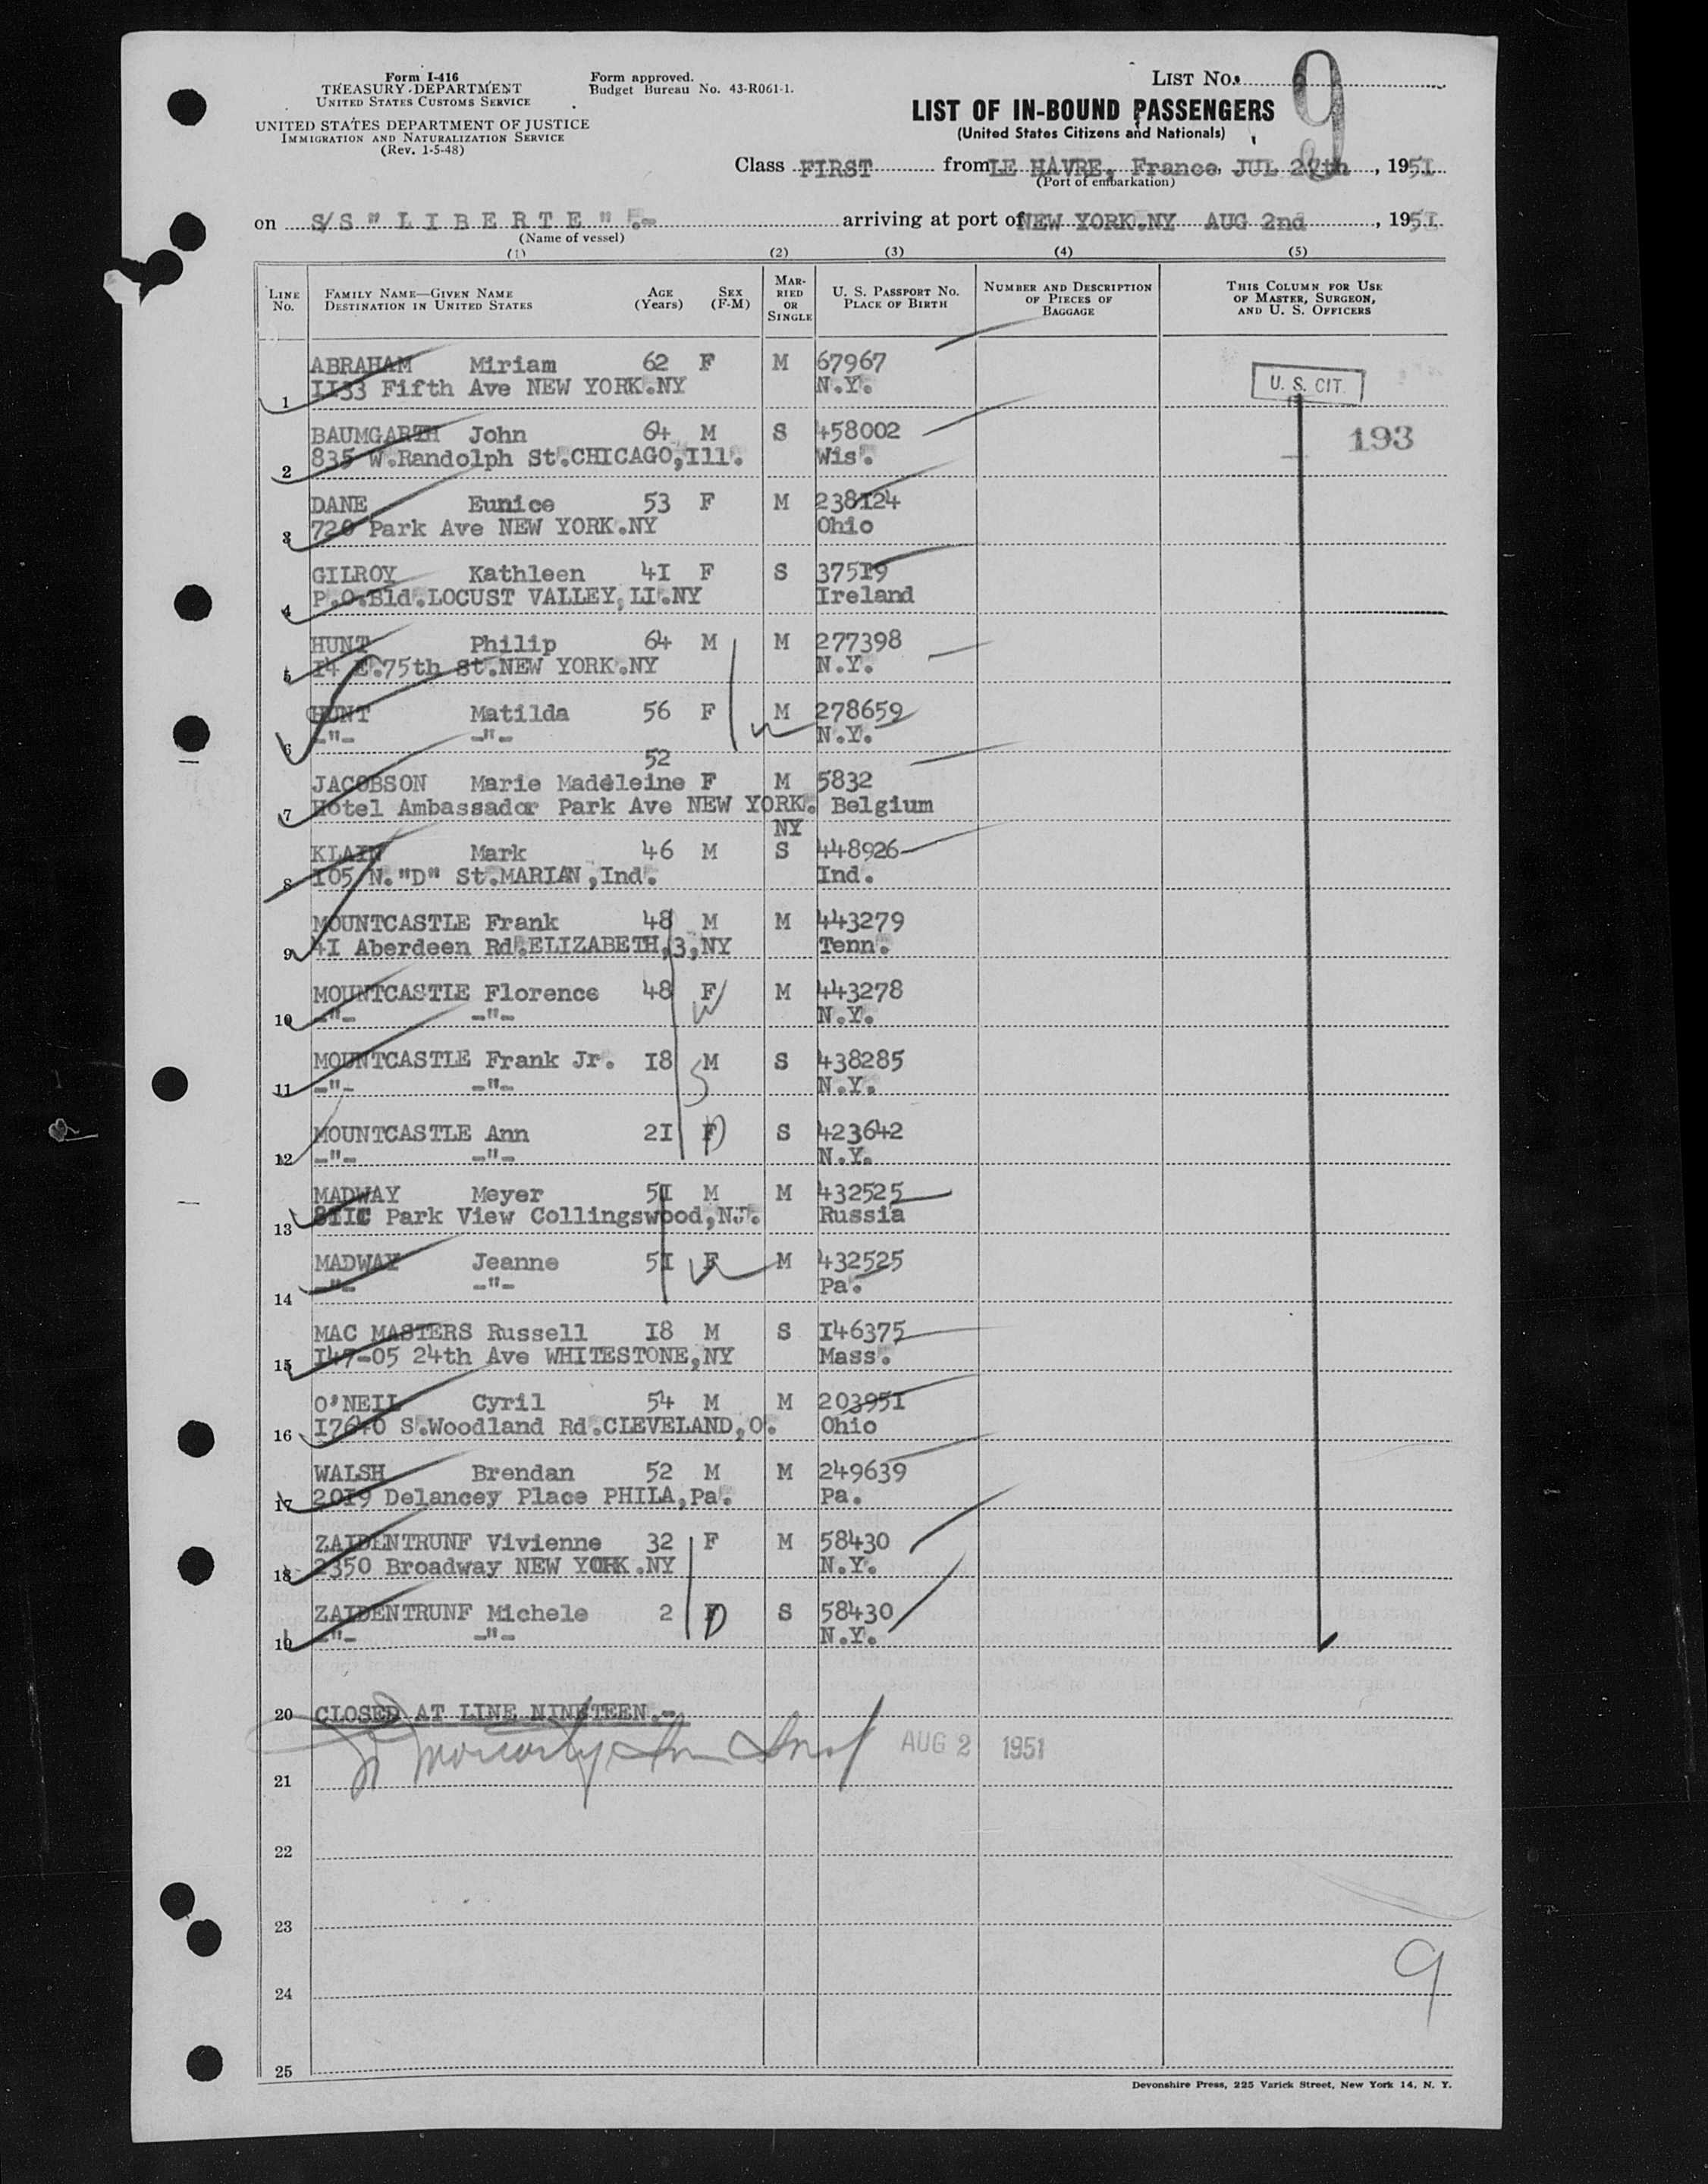 Form I-416
TREASURY DEPARTMENT
UNITED STATES CUSTOMS SERVICE
UNITED STATES DEPARTMENT OF JUSTICE
IMMIGRATION AND NATURALIZATION SERVICE
(Rev. 1-5-48)
Form approved.
Budget Bureau No. 43-R061-1.
LIST No. 9
LIST OF IN-BOUND PASSENGERS
(United States Citizens and Nationals)
Class FIRST from LE HAVRE, France, JUL th, 1951
(Port of embarkation)
on S/S "LIBERTE".- arriving at port of NEW YORK.NY AUG 2nd, 1951
(Name of vessel)
(1) (2) (3) (4) (5)
LINE No. FAMILY NAME—GIVEN NAME DESTINATION IN UNITED STATES AGE (Years) SEX (F-M) MARRIED OR SINGLE U. S. PASSPORT No. PLACE OF BIRTH NUMBER AND DESCRIPTION OF PIECES OF BAGGAGE THIS COLUMN FOR USE OF MASTER, SURGEON, AND U. S. OFFICERS
ABRAHAM Miriam 62 F M 67967
1 1133 Fifth Ave NEW YORK.NY N.Y. U. S. CIT.
BAUMGARTH John 64 M S 458002 193
2 835 W.Randolph St.CHICAGO,Ill. Wis.
DANE Eunice 53 F M 238124
3 720 Park Ave NEW YORK.NY Ohio
GILROY Kathleen 41 F S 37519
4 P.O.Bld.LOCUST VALLEY,LI.NY Ireland
HUNT Philip 64 M M 277398
5 14 E.75th St.NEW YORK.NY N.Y.
HUNT Matilda 56 F M 278659
6 -"- -"- N.Y.
52
JACOBSON Marie Madeleine F M 5832
7 Hotel Ambassador Park Ave NEW YORK. Belgium
NY
KLAIN Mark 46 M S 448926
8 105 N."D" St.MARIAN,Ind. Ind.
MOUNTCASTLE Frank 48 M M 443279
9 41 Aberdeen Rd.ELIZABETH,3,NY Tenn.
MOUNTCASTLE Florence 48 F M 443278
10 -"- -"- N.Y.
MOUNTCASTLE Frank Jr. 18 M S 438285
11 -"- -"- N.Y.
MOUNTCASTLE Ann 21 F S 423642
12 -"- -"- N.Y.
MADWAY Meyer 51 M M 432525
13 811C Park View Collingswood,NJ. Russia
MADWAY Jeanne 51 F M 432525
14 -"- -"- Pa.
MAC MASTERS Russell 18 M S 146375
15 147-05 24th Ave WHITESTONE,NY Mass.
O'NEIL Cyril 54 M M 203951
16 17640 S.Woodland Rd.CLEVELAND,O. Ohio
WALSH Brendan 52 M M 249639
17 2019 Delancey Place PHILA,Pa. Pa.
ZAIDENTRUNF Vivienne 32 F M 58430
18 2350 Broadway NEW YORK.NY N.Y.
ZAIDENTRUNF Michele 2 F S 58430
19 -"- -"- N.Y.
20 CLOSED AT LINE NINETEEN.-
AUG 2 1951
21
22
23
9
24
25
Devonshire Press, 225 Varick Street, New York 14, N. Y.